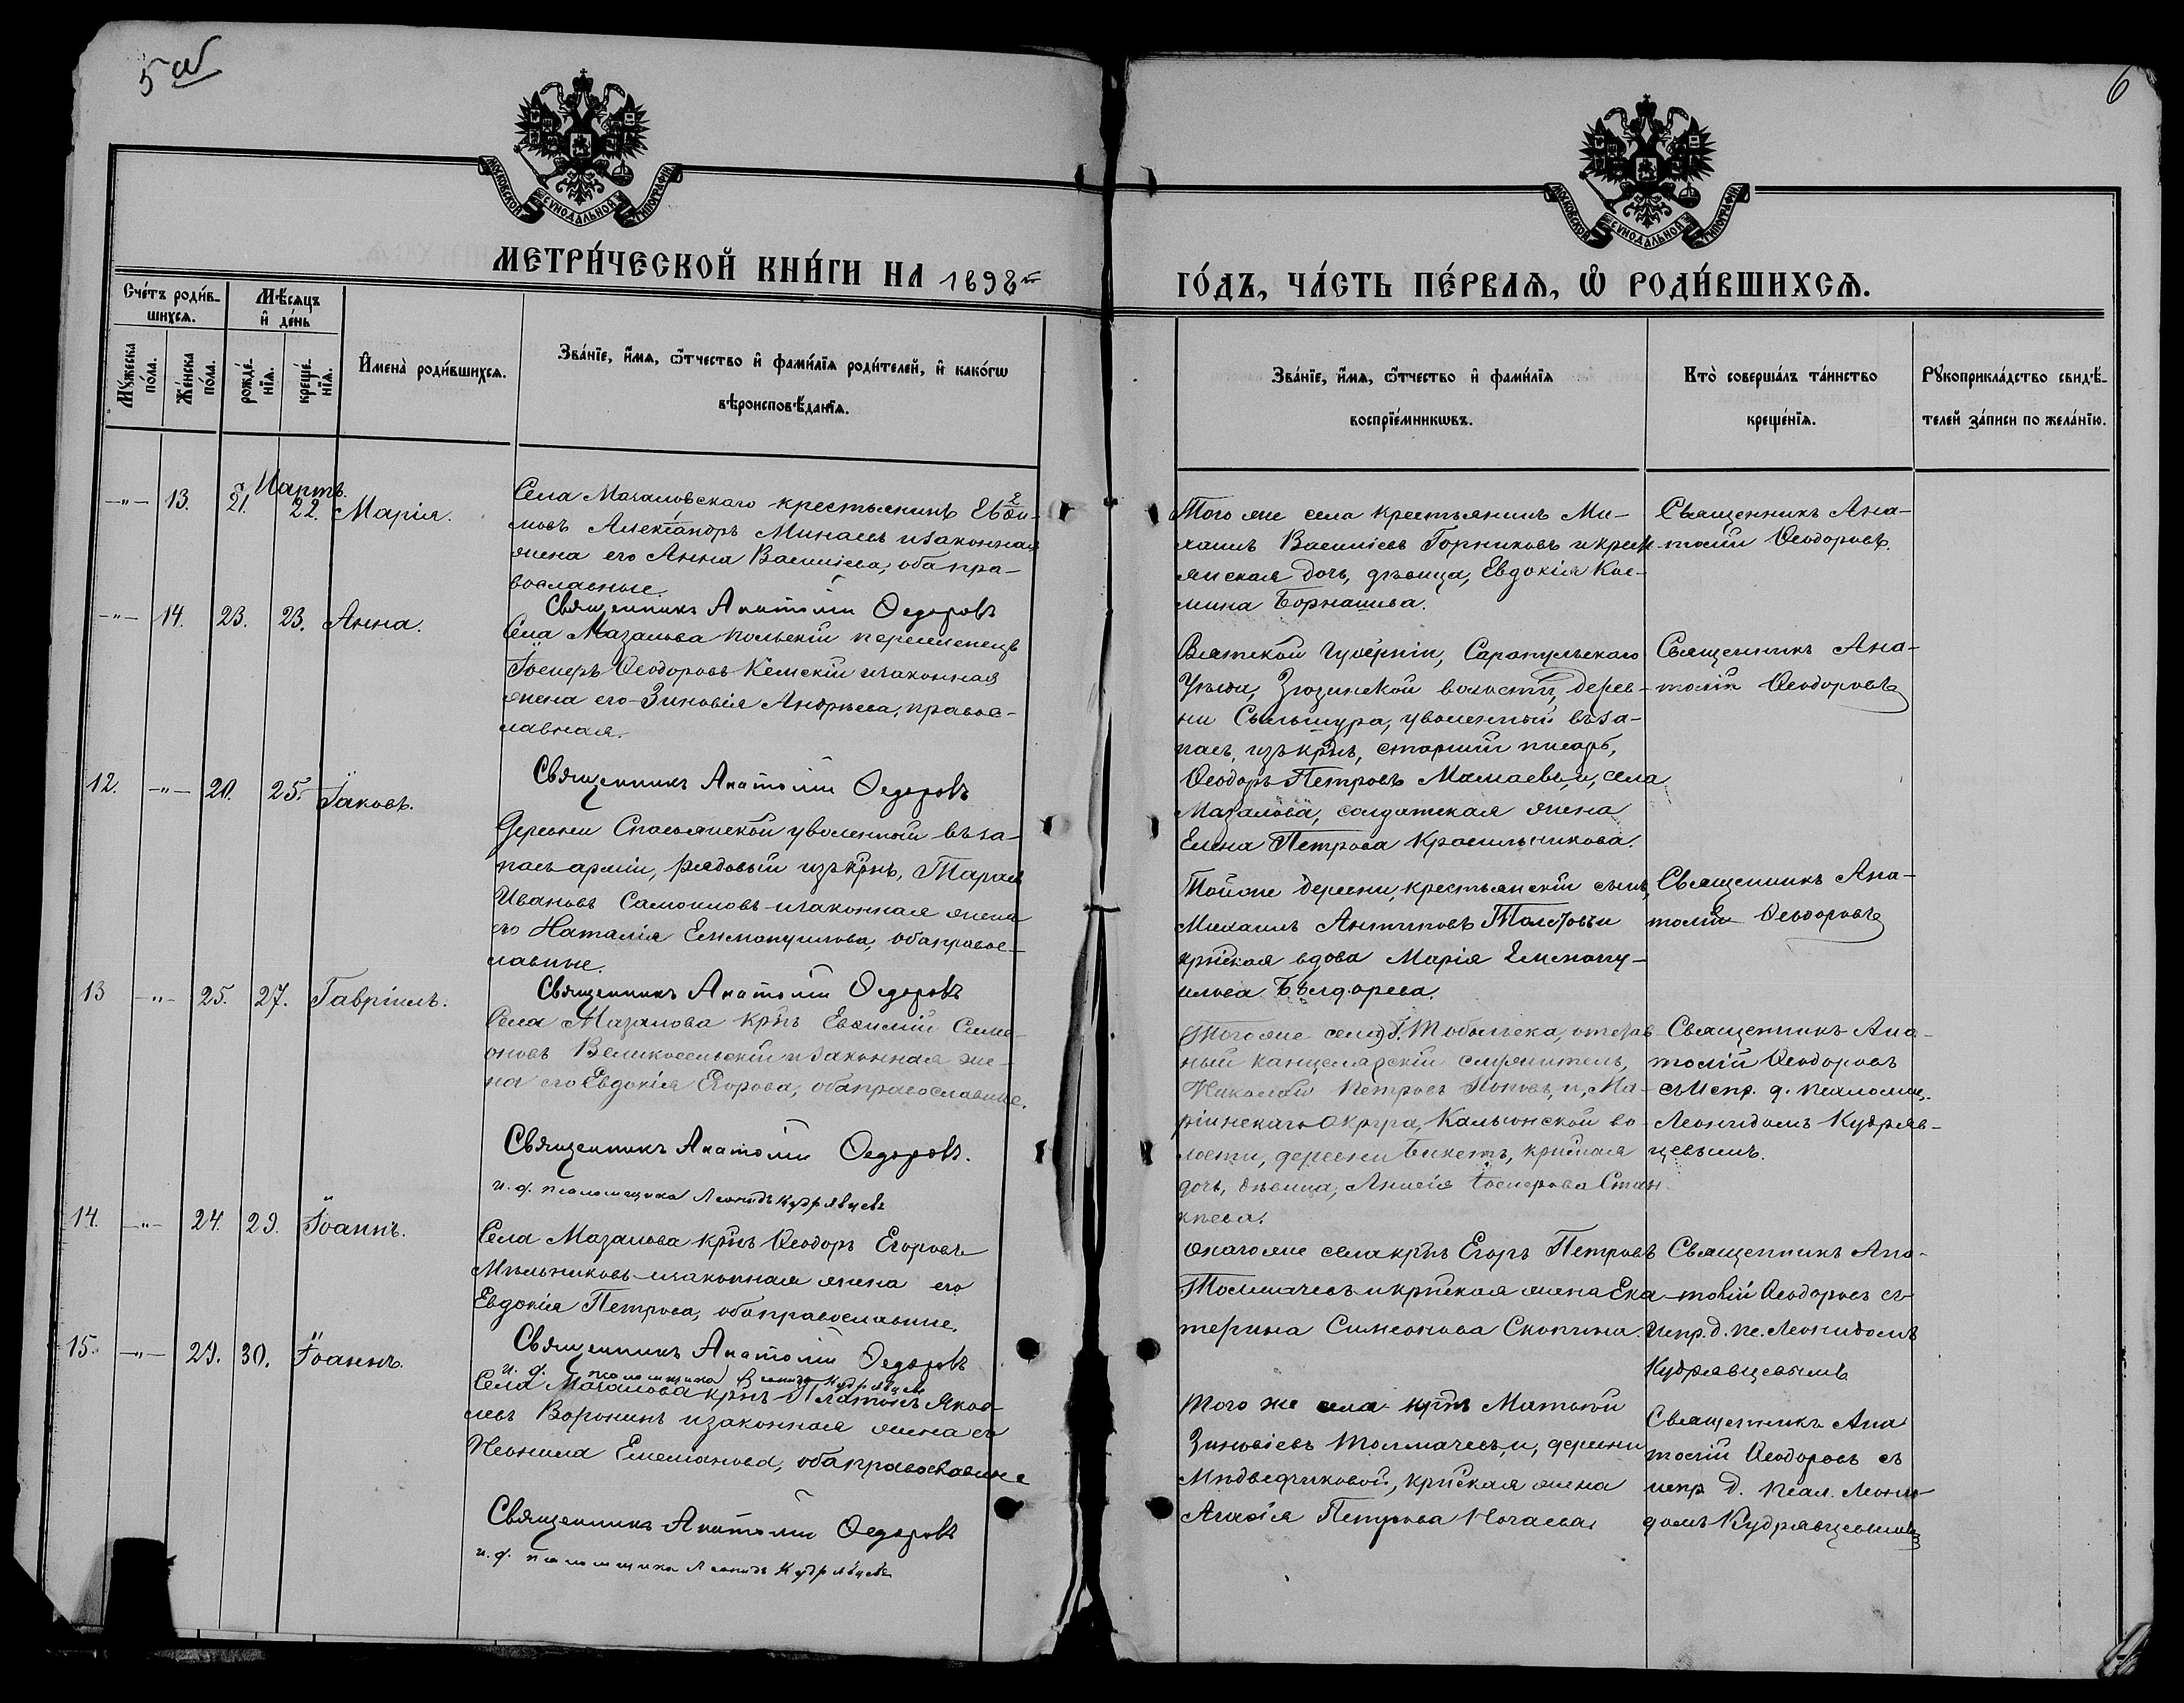 5 об
6
МОСКОВСКОЙ СѴНОДАЛЬНОЙ ТИПОГРАФІИ
МОСКОВСКОЙ СѴНОДАЛЬНОЙ ТИПОГРАФІИ
МЕТРИ́ЧЕСКОЙ КНИ́ГИ НА 1898й
ГО́ДЪ, ЧА́СТЬ ПЕ́РВАЯ, Ѡ РОДИ́ВШИХСЯ.
Сче́тъ роди́в-
шихся.
Мѣ́сяцъ
и де́нь
Мꙋ́жеска
по́ла.
Же́нска
по́ла.
рожде́-
нїя.
креще́-
нїя.
Имена̀ роди́вшихся.
Зва́нїе, и́мя, ѻ҆́тчество и фами́лїя роди́телей, и како́гѡ
вѣроисповѣ́данїя.
Зва́нїе, и́мя, ѻ҆́тчество и фами́лїя
воспрїе́мникѡвъ.
Кто̀ соверша́лъ та́инство
креще́нїя.
Рꙋкоприкла́дство свидѣ́-
телей за́писи по жела́нїю.
Мартъ.
-"- 13. 21. 22. Марія.
Села Мазаловскаго крестьянинъ
Александръ Минаевъ и законная
жена его Анна Василіева, оба пра-
вославные.
Священникъ Анатолій Ѳедоровъ
Того же села крестьянинъ Ми-
хаилъ Василіевъ Горниковъ и крест
янская дочь, дѣвица, Евдокія Кос-
мина
Священникъ Ана-
толій Ѳеодоровъ.
-"- 14. 23. 23. Анна.
Села Мазалова польскій переселенецъ
Іосифъ Ѳеодоровъ Кемскій и законная
жена его Зиновія Андреева, правос-
лавная.
Священникъ Анатолій Ѳедоровъ
Вятской губерніи, Сарапульскаго
Уѣзда, Зюзинской волости, дерев-
ни уволенный въ за-
пасъ, изъ крнъ, старшій писарь,
Ѳеодоръ Петровъ Мамаевъ, и, села
Мазалова, солдатская жена
Елена Петрова Красильникова.
Священникъ Ана-
толій Ѳеодоровъ
12. -"- 20. 25. Іаковъ.
Деревни уволенный въ за-
пасъ арміи, рядовый изъ крнъ, Тарасъ
Ивановъ Самоиловъ и законная жена
его Наталія Еммануилова, оба правос-
лавные.
Священникъ Анатолій Ѳедоровъ
Той же деревни, крестьянскій сынъ,
Михаилъ Антиповъ и
крнская вдова Марія Емману-
илова
Священникъ Ана-
толій Ѳеодоровъ
13 -"- 25. 27. Гавріилъ.
Села Мазалова крнъ Евѳимій Симе-
оновъ Великосельскій и законная же-
на его Евдокія Егорова, оба православные.
Священникъ Анатолій Ѳедоровъ.
и. д. псаломщика Леонидъ Кудрявцевъ
Того же села, г. Тобольска, отстав
ный канцелярскій служитель,
Николай Петровъ Поповъ, и, Ма-
ріинскаго округа, во-
лости, деревни крнская
дочь, дѣвица, Анисія Іосифова
Священникъ Ана-
толій Ѳеодоровъ
съ испр. д. псаломщ.
Леонидомъ Кудряв-
цевымъ.
14. -"- 24. 29. Іоаннъ.
Села Мазалова крнъ Ѳеодоръ Егоровъ
Мѣльниковъ и законная жена его
Евдокія Петрова, оба православные.
Священникъ Анатолій Ѳедоровъ
и. д. псаломщика Леонидъ Кудрявцевъ
Онаго же села крнъ Егоръ Петровъ
Толмачевъ и крнская жена Ека
терина Симеонова Скопина.
Священникъ Ана-
толій Ѳеодоровъ съ
испр. д. пс. Леонидомъ
Кудрявцевымъ
15. -"- 29. 30. Іоаннъ.
Села Мазалова крнъ Платонъ Яков
левъ Воронинъ и законная жена его
Неонила Емеліанова, оба православные
Священникъ Анатолій Ѳедоровъ
и. д. псаломщика Леонидъ Кудрявцевъ
Того же села крнъ Матвѣй
Зиновіевъ Толмачевъ, и, деревни
Медведчиковой, крнская жена
Агаѳія Петрова
Священникъ Ана
толій Ѳеодоровъ съ
испр. д. псал. Леони-
домъ Кудрявцевымъ